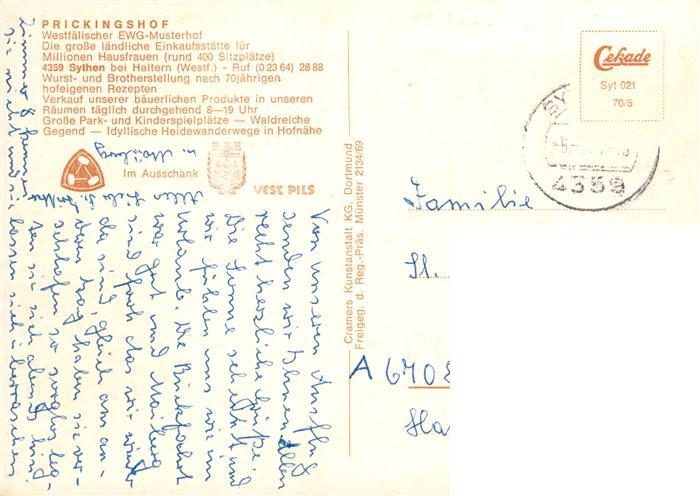 PRICKINGSHOF
Westfälischer EWG-Musterhof
Die große ländliche Einkaufsstätte für
Millionen Hausfrauen (rund 400 Sitzplätze)
4359 Sythen bei Haltern (Westf.) - Ruf (0 23 64) 28 88
Wurst- und Brotherstellung nach 70jährigen
hofeigenen Rezepten
Verkauf unserer bäuerlichen Produkte in unseren
Räumen täglich durchgehend 8—19 Uhr
Große Park- und Kinderspielplätze — Waldreiche
Gegend — Idyllische Heidewanderwege in Hofnähe
Im Ausschank
VEST PILS
Cekade
Syt 021
70/5
4359
Cramers Kunstanstalt KG, Dortmund
Freigeg. d. Reg.-Präs. Münster 2134/69
Von unserem Ausflug
senden wir Ihnen allen
recht herzliche Grüße.
Die Sonne scheint und
wir fühlen uns wie im
Urlaub. Die
war gut und
sind froh das wir wieder
da sind, gleich am an-
deren Tag haben sie ver-
schlafen so
sie sich abends hin
lassen sich überraschen
Familie
St.
A 670
Ha